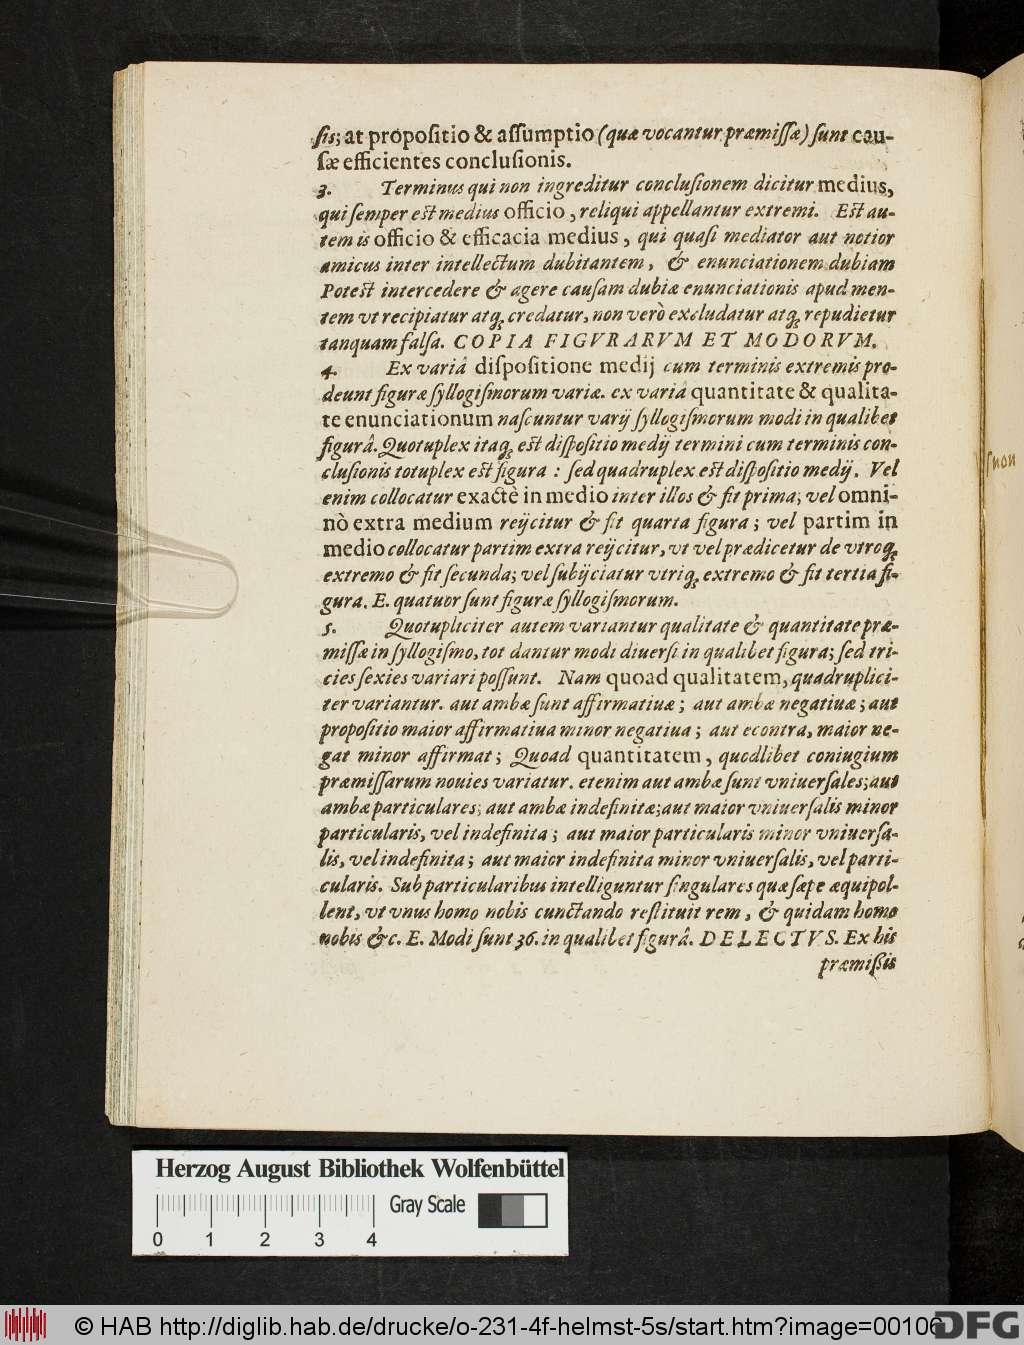 sis; at propositio & assumptio (quæ vocantur præmissæ) sunt cau-
sæ efficientes conclusionis.
3. Terminus qui non ingreditur conclusionem dicitur medius,
qui semper est medius officio, reliqui appellantur extremi. Est au-
tem is officio & efficacia medius, qui quasi mediator aut notior
amicus inter intellectum dubitantem, & enunciationem dubiam
Potest intercedere & agere causam dubiæ enunciationis apud men-
tem vt recipiatur atq; credatur, non verò excludatur atq; repudietur
tanquam falsa. COPIA FIGVRARVM ET MODORVM.
4. Ex variâ dispositione medij cum terminis extremis pro-
deunt figuræ syllogismorum variæ. ex variâ quantitate & qualita-
te enunciationum nascuntur varij syllogismorum modi in qualibet
figurâ. Quotuplex itaq; est dispositio medij termini cum terminis con-
clusionis totuplex est figura : sed quadruplex est dispositio medij. Vel
enim collocatur exactè in medio inter illos & fit prima; vel omni-
nò extra medium reijcitur & fit quarta figura ; vel partim in
medio collocatur partim extra reijcitur, vt vel prædicetur de vtroq;
extremo & fit secunda; vel subijciatur vtriq; extremo & fit tertia fi-
gura. E. quatuor sunt figuræ syllogismorum.
5. Quotupliciter autem variantur qualitate & quantitate præ-
missæ in syllogismo, tot dantur modi diuersi in qualibet figura; sed tri-
cies sexies variari possunt. Nam quoad qualitatem, quadruplici-
ter variantur. aut ambæ sunt affirmatiuæ ; aut ambæ negatiuæ ; aut
propositio maior affirmatiua minor negatiua ; aut econtra, maior ne-
gat minor affirmat ; Quoad quantitatem, quodlibet coniugium
præmissarum nouies variatur. etenim aut ambæ sunt vniuersales; aut
ambæ particulares; aut ambæ indefinitæ; aut maior vniuersalis minor
particularis, vel indefinita ; aut maior particularis minor vniuersa-
lis, vel indefinita ; aut maior indefinita minor vniuersalis, vel parti-
cularis. Sub particularibus intelliguntur singulares quæ sæpe æquipol-
lent, vt vnus homo nobis cunctando restituit rem, & quidam homo
nobis &c. E. Modi sunt 36. in qualibet figurâ. DELECTVS. Ex his
præmissis
snon
Herzog August Bibliothek Wolfenbüttel
Gray Scale
0 1 2 3 4
© HAB http://diglib.hab.de/drucke/o-231-4f-helmst-5s/start.htm?image=00106
DFG